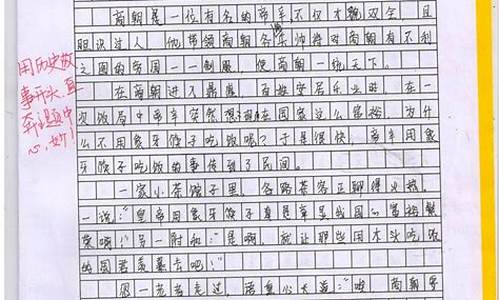 商朝是一位有名的帝辛,不仅才貌双全,且
胆识过人,他带领商朝各 将对商朝有不利
之国的帝国一一制服,使商朝一统天下。
在商朝进入鼎盛,百姓安居乐业时,在一
次饭局中帝辛突然想 现在国家这么富裕,为什
么不用象牙筷子吃饭呢?于是很快,帝辛用象
牙筷子吃饭的事传到了民间。
一家小茶馆子里,各路茶客正聊得火热。
一说:“皇帝用象牙筷子真是彰显我国富裕繁
荣啊!”另一附和:“是啊,就让那些用木头吃饭
的国君羡慕去吧!”
恩一老者走过,语重心长道:“咱 商朝
用历史故
事开头,直
奔主题中
心,妙!